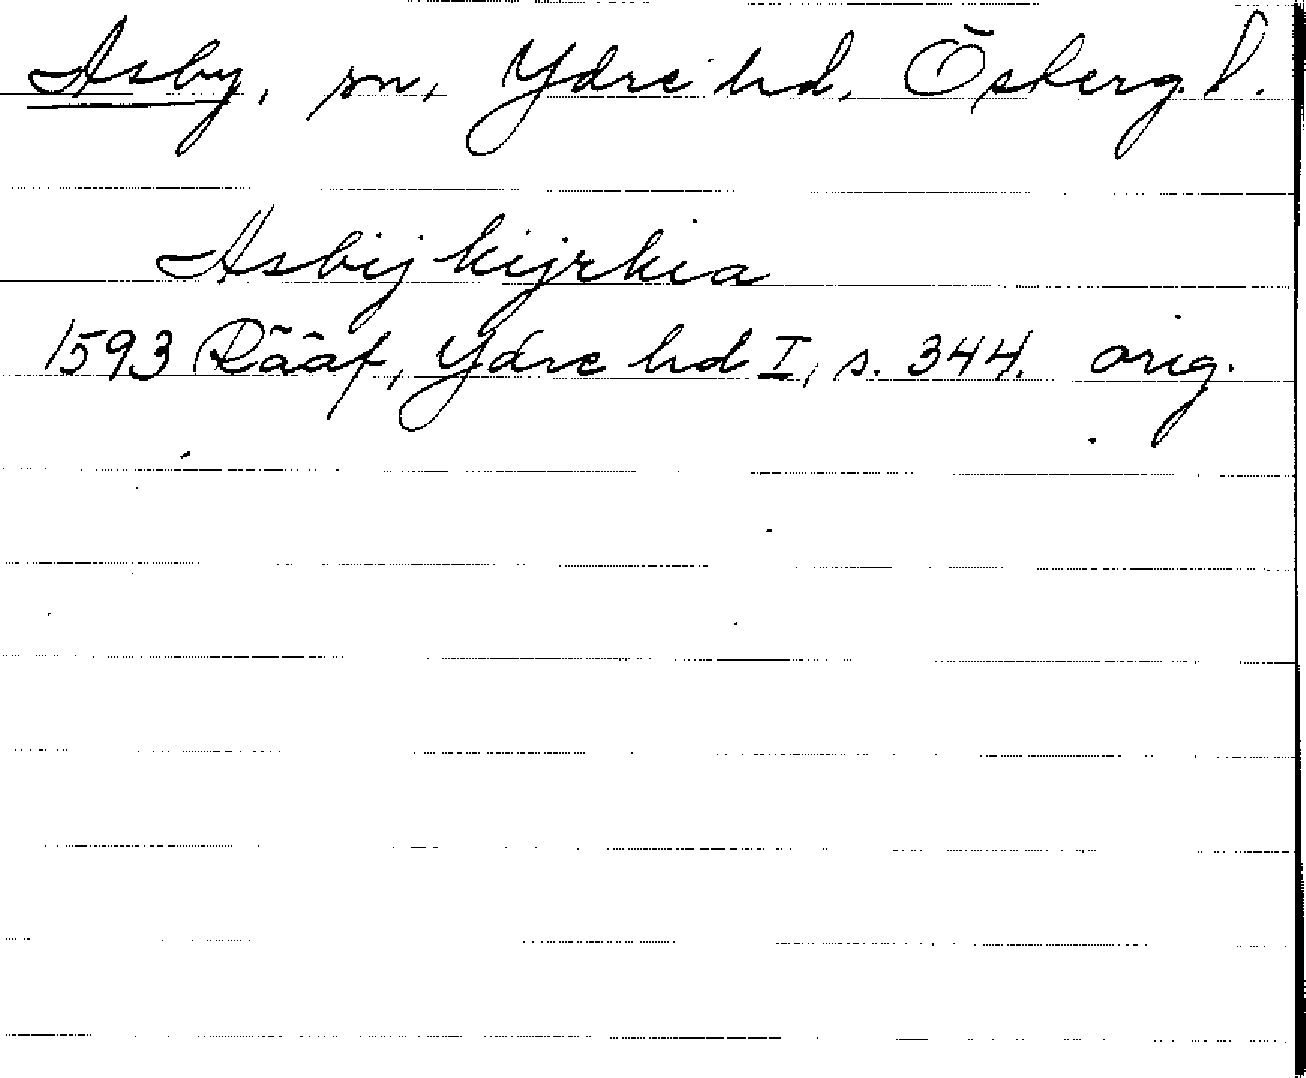 Asby, sn, Ydre hd, Österg. l.
Asbij kijrkia
1593 Rääf, Ydre hd I, s. 344. orig.